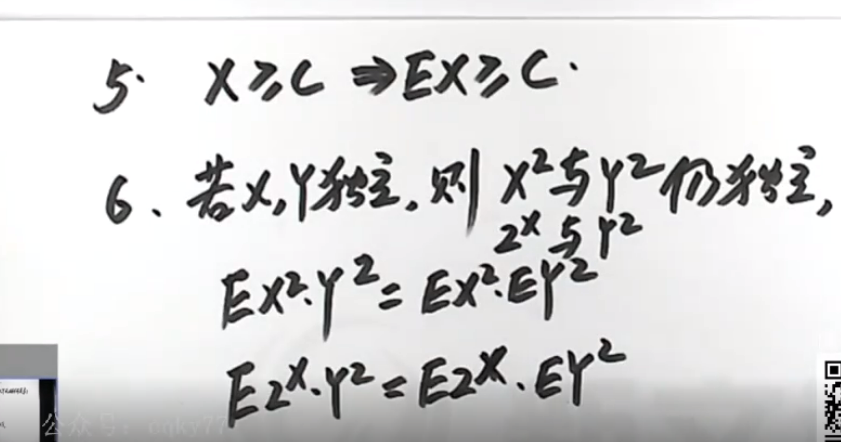 5. X ⩾ C ⇒ EX ⩾ C.
6、若X,Y独立,则 X²与Y²仍独立,
2ˣ与Y²
EX²·Y² = EX²·EY²
E2ˣ·Y² = E2ˣ·EY²
公众号: